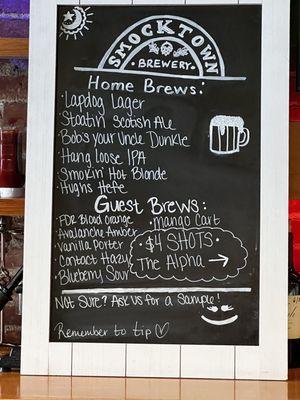 SMOCKTOWN
BREWERY
Home Brews:
·Lapdog Lager
·Staatin Scotish Ale
·Bob's your Uncle Dunkle
·Hang loose IPA
·Smokin Hot Blonde
·Hughs Hefe
Guest Brews:
·FDR Blood orange
·Mango Cart
·Avalanche Amber
·Vanilla Porter
·Contact Hazy
·Blueberry Sour
$4 SHOTS
The Alpha →
Not Sure? Ask us for a Sample!
Remember to tip ♡